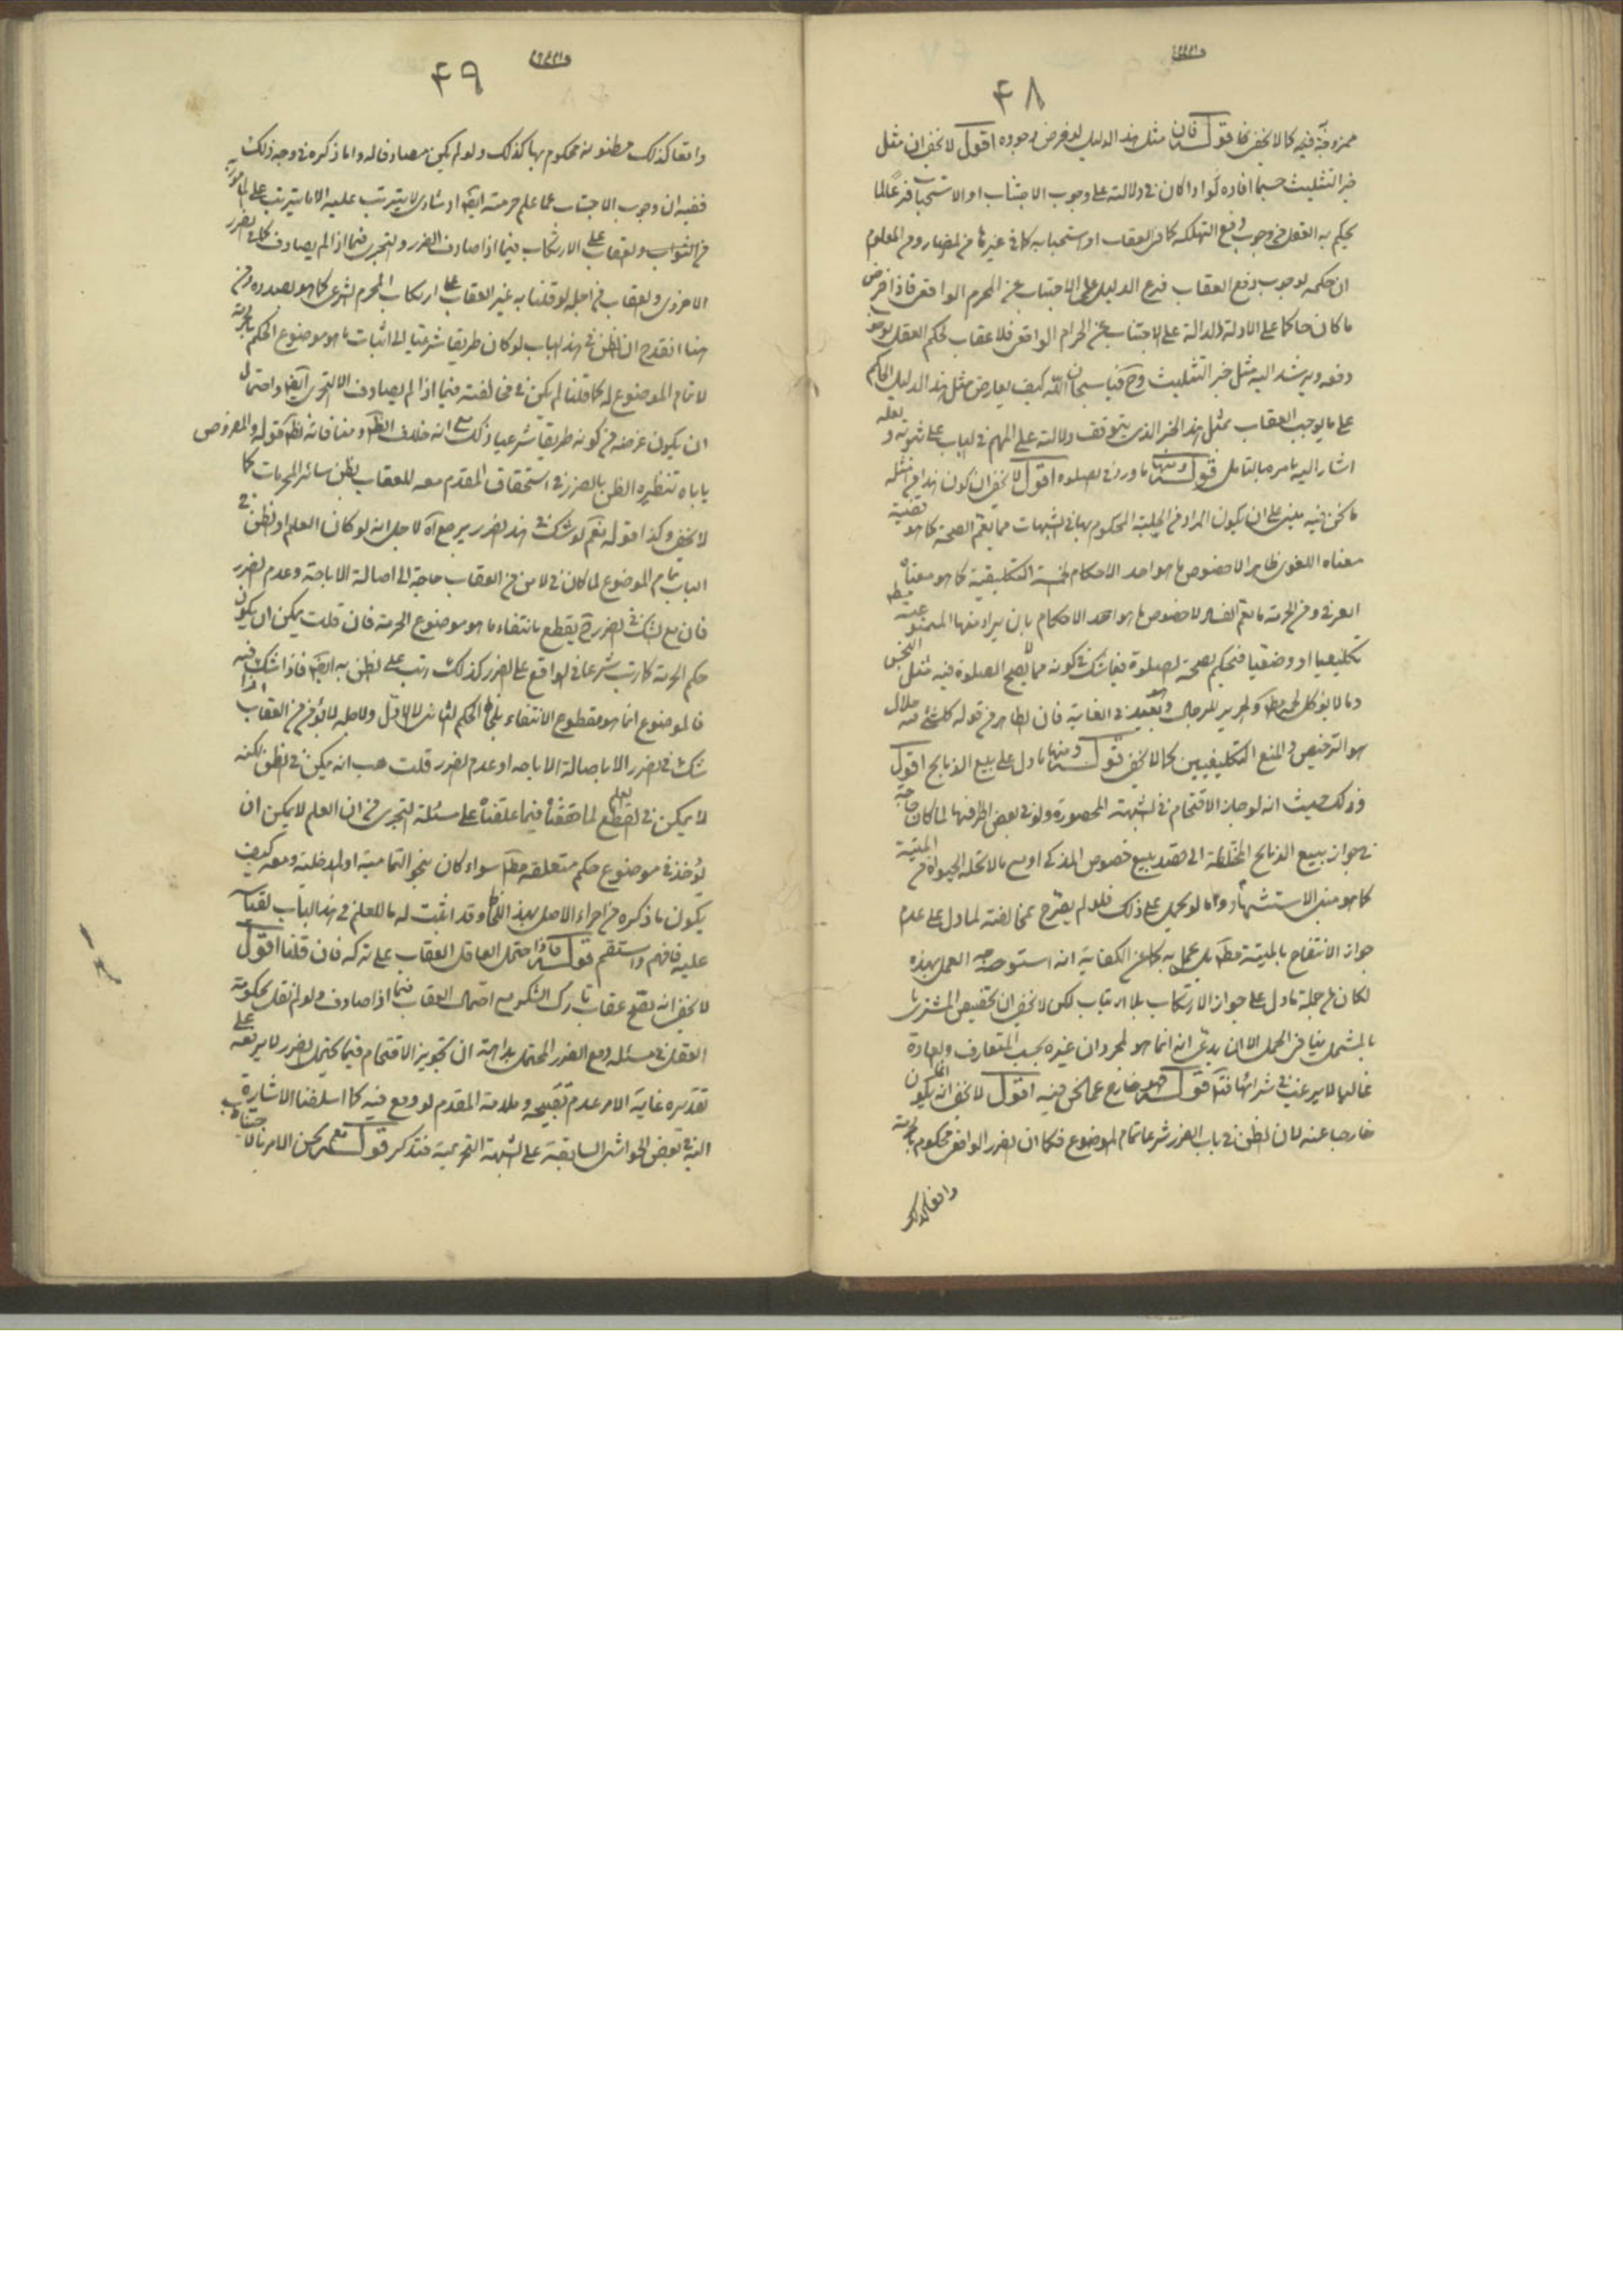 ۴۸
ممزوجة فيه كما لا يخفى قوله فان مثل هذا الدليل لو فرض وجوده اقول لا يخفى ان مثل
خبر التثليث حسبما افاده لو كان فى دلالته على وجوب الاجتناب او الاستحباب
يحكم به العقل من وجوب دفع التهلكه كما فى العقاب او استحبابه كما فى غيرها من المضار ومن المعلوم
ان حكمه بوجوب دفع العقاب فرع الدليل على الاجتناب عن المحرم الواقعى فاذا فرض
ما كان حاكما على الادلة الدالة على الاجتناب عن الحرام الواقعى فلا عقاب يحكم العقل بوجوب
دفعه ويرشد اليه مثل خبر التثليث وح فيا سبحان الله كيف يعارض مثل هذا الدليل الحاكم
على ما يوجب العقاب بمثل هذا الخبر الذى يتوقف دلالته على المهم فى الباب على ثبوته و لعله
اشار اليه بامره بالتامل قوله ومنها ما ورد فى الصلوة اقول لا يخفى ان كون هذا من امثله
ما نحن فيه مبنى على ان يكون المراد من الحلية المحكوم بها فى الشبهات مما يعم الصحة كما هو قضية
معناه اللغوى ظاهرا لا خصوص ما هو احد الاحكام الخمسة التكليفية كما هو معناه
العرفى ومن الحرمة ما يعم الفساد لا خصوص ما هو احد الاحكام بان يراد منها الممنوعية
تكليفيا او وضعيا فيحكم بصحة الصلوة فيما شك فى كونه مما لا يصح الصلوة فيه مثل النجس
وما لا يؤكل لحمه والحرير للرجال وهو بعيد فى الغاية فان الظاهر من قوله كل شئ فيه حلال
هو الترخيص والمنع التكليفيين كما لا يخفى قوله ومنها ما دل على بيع الذبايح اقول
وذلك حيث انه لو جاز الاقتحام فى الشبهة المحصورة ولو فى بعض اطرافها لما كان حاجة
فى جواز بيع الذبايح المختلطة الى قصد بيع خصوص المذكى او مع ما لا تحله الحيوة من الميتة
كما هو مبنى الاستشهاد واما لو لم يحمل على ذلك فلو لم يطرح بمخالفته لما دل على عدم
جواز الانتفاع بالميتة مط بل عمل به كما عن الكفاية انه استوجه العمل بهذه
لكان من جملة ما دل على جواز الارتكاب بلا ارتياب لكن لا يخفى ان تخصيص المشترى
بالمستحل ينافى الحمل الا ان يدعى انه انما هو لمجرد ان غيره بحسب المتعارف والعادة
غالبا لا يرغب فى شرائها فتا قوله فهو خارج عما نحن فيه اقول لا يخفى انه انما يكون
خارجا عنه لان الظن فى باب الضرر شرعا تمام الموضوع فكما ان الضرر الواقعى محكوم بالحرمة
واقعا كذلك
۴۹
واقعا كذلك مظنونه محكوم بها كذلك ولو لم يكن مصادفا له واما ذكره فى وجه ذلك
ففيه ان وجوب الاجتناب عما علم حرمته ايضا ارشادى لا يترتب عليه الا ما يترتب على
من الثواب والعقاب على الارتكاب فيما اذا صادف الضرر والتجرى فيما اذا لم يصادف
الاخروى والعقاب فى اجله لو قلنا به غير العقاب على ارتكاب المحرم الشرعى كما هو بصدده ومن
هنا انقدح ان الظن فى هذا الباب لو كان طريقا شرعيا الى اثبات ما هو موضوع الحكم بالحرمة
لا تمام الموضوع له كما قلنا لم يكن فى مخالفته فيما اذا لم يصادف الا التجرى ايضا واحتمال
ان يكون غرضه من كونه طريقا شرعيا ذلك مع انه خلاف الظ ومنافاته لقوله والمفروض
ياباه تنظيره الظن بالضرر فى استحقاق المقدم معه للعقاب بظن سائر المحرمات كما
لا يخفى وكذا قوله نعم لو شك فى هذا الضرر يرجع اه لاجل انه لو كان العلم او الظن فى
الباب تمام الموضوع لما كان فى الامن من العقاب حاجة الى اصالة الاباحة وعدم الضرر
فان مع الشك فى الضرر ح يقطع بانتفاء ما هو موضوع الحرمة فان قلت يمكن ان يكون
حكم الحرمة كما رتب شرعا فى الواقع على الضرر كذلك رتب على الظن به ايضا فاذا شك فيه
فالموضوع انما هو مقطوع الانتفاء بلحاظ الحكم الثانى لا الاول ولاجله لا يؤمن من العقاب اذا
شك فى الضرر الا باصالة الاباحه او عدم الضرر قلت هب انه يمكن فى الظن لكنه
لا يمكن فى العلم القطع لما حققناه فيما علقناه على مسئلة التجرى من ان العلم لا يمكن ان
يؤخذ فى موضوع حكم متعلقه مط سواء كان بنحو التمامية او المدخلية ومعه كيف
يكون ما ذكره من اجراء الاصل بهذا اللحاظ وقد اثبت له ما للعلم فى هذا الباب
عليه فافهم واستقم قوله فاذا احتمل العاقل العقاب على تركه فان قلنا اقول
لا يخفى انه يصح عقاب تارك الشكر مع احتمال العقاب فيما اذا صادف ولو لم نقل بحكومة
العقل فى مسئله دفع الضرر المحتمل بداهة ان تجويز الاقتحام فيما يحتمل الضرر لا يرفعه على
تقديره غاية الامر عدم تقبيحه وملامة المقدم لو وقع فيه كما اسلفنا الاشارة
اليه فى بعض الحواشى السابقة على الشبهة التحريمية فتذكر قوله نعم يحسن الامر بالاجتناب